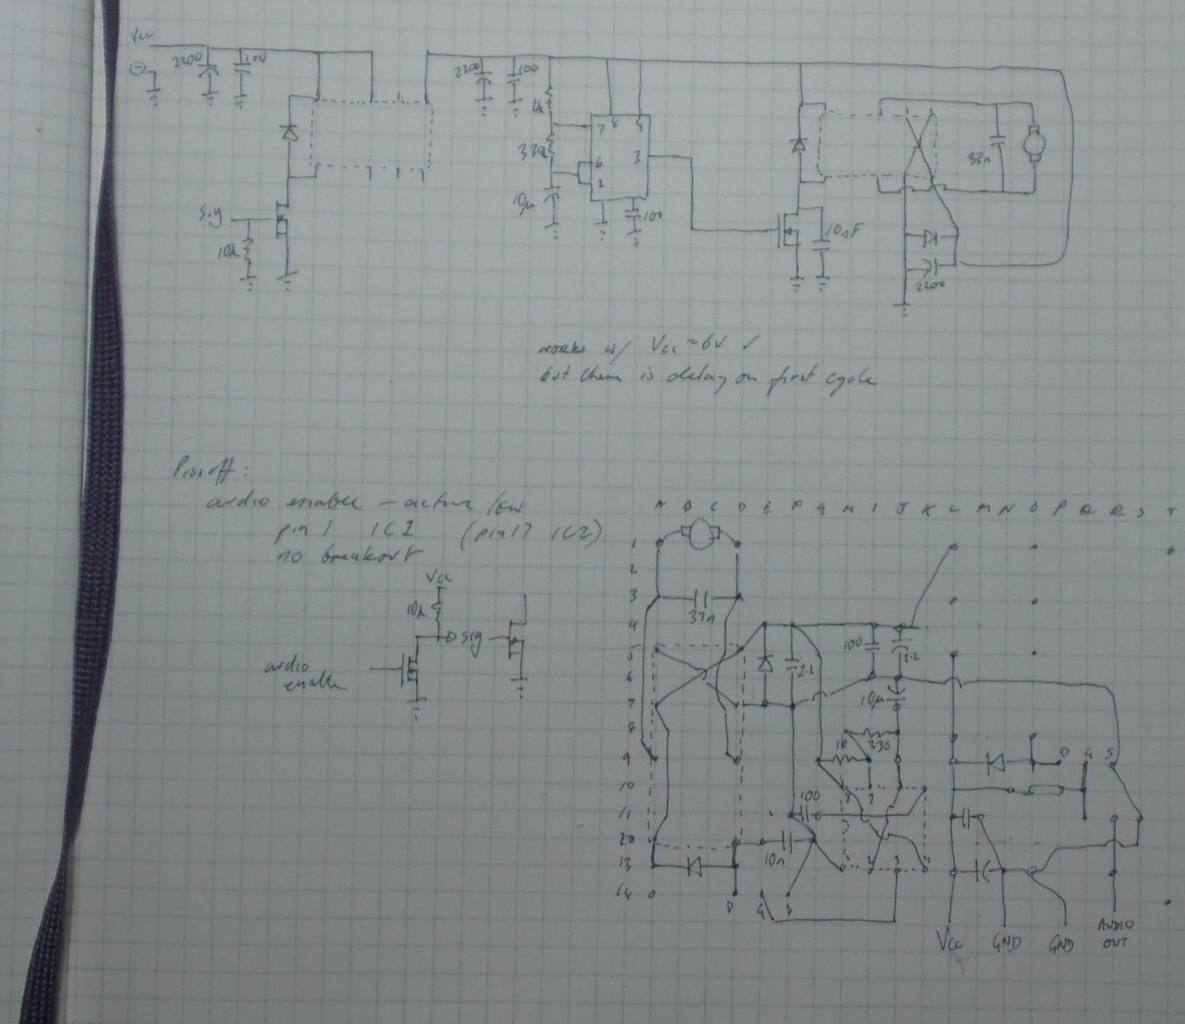 Vcc
2200
100
2200
100
1k
330
7
8
4
6
3
2
10μ
100
Sig
10k
10nF
33n
2200
works w/ Vcc = 6V ✓
but there is delay on first cycle
Pin off:
audio enable - active low
pin 1 IC1 (pin 17 IC2)
no breakout
Vcc
10k
Sig
audio
enable
A B C D E F G H I J K L M N O P Q R S T
1
2
3
33n
4
5
100
2.2
6
2.2
7
10μ
8
1k
330
9
D G S
10
8 7
11
100
12
10n
13
14
D G S
Vcc GND GND AUDIO
OUT